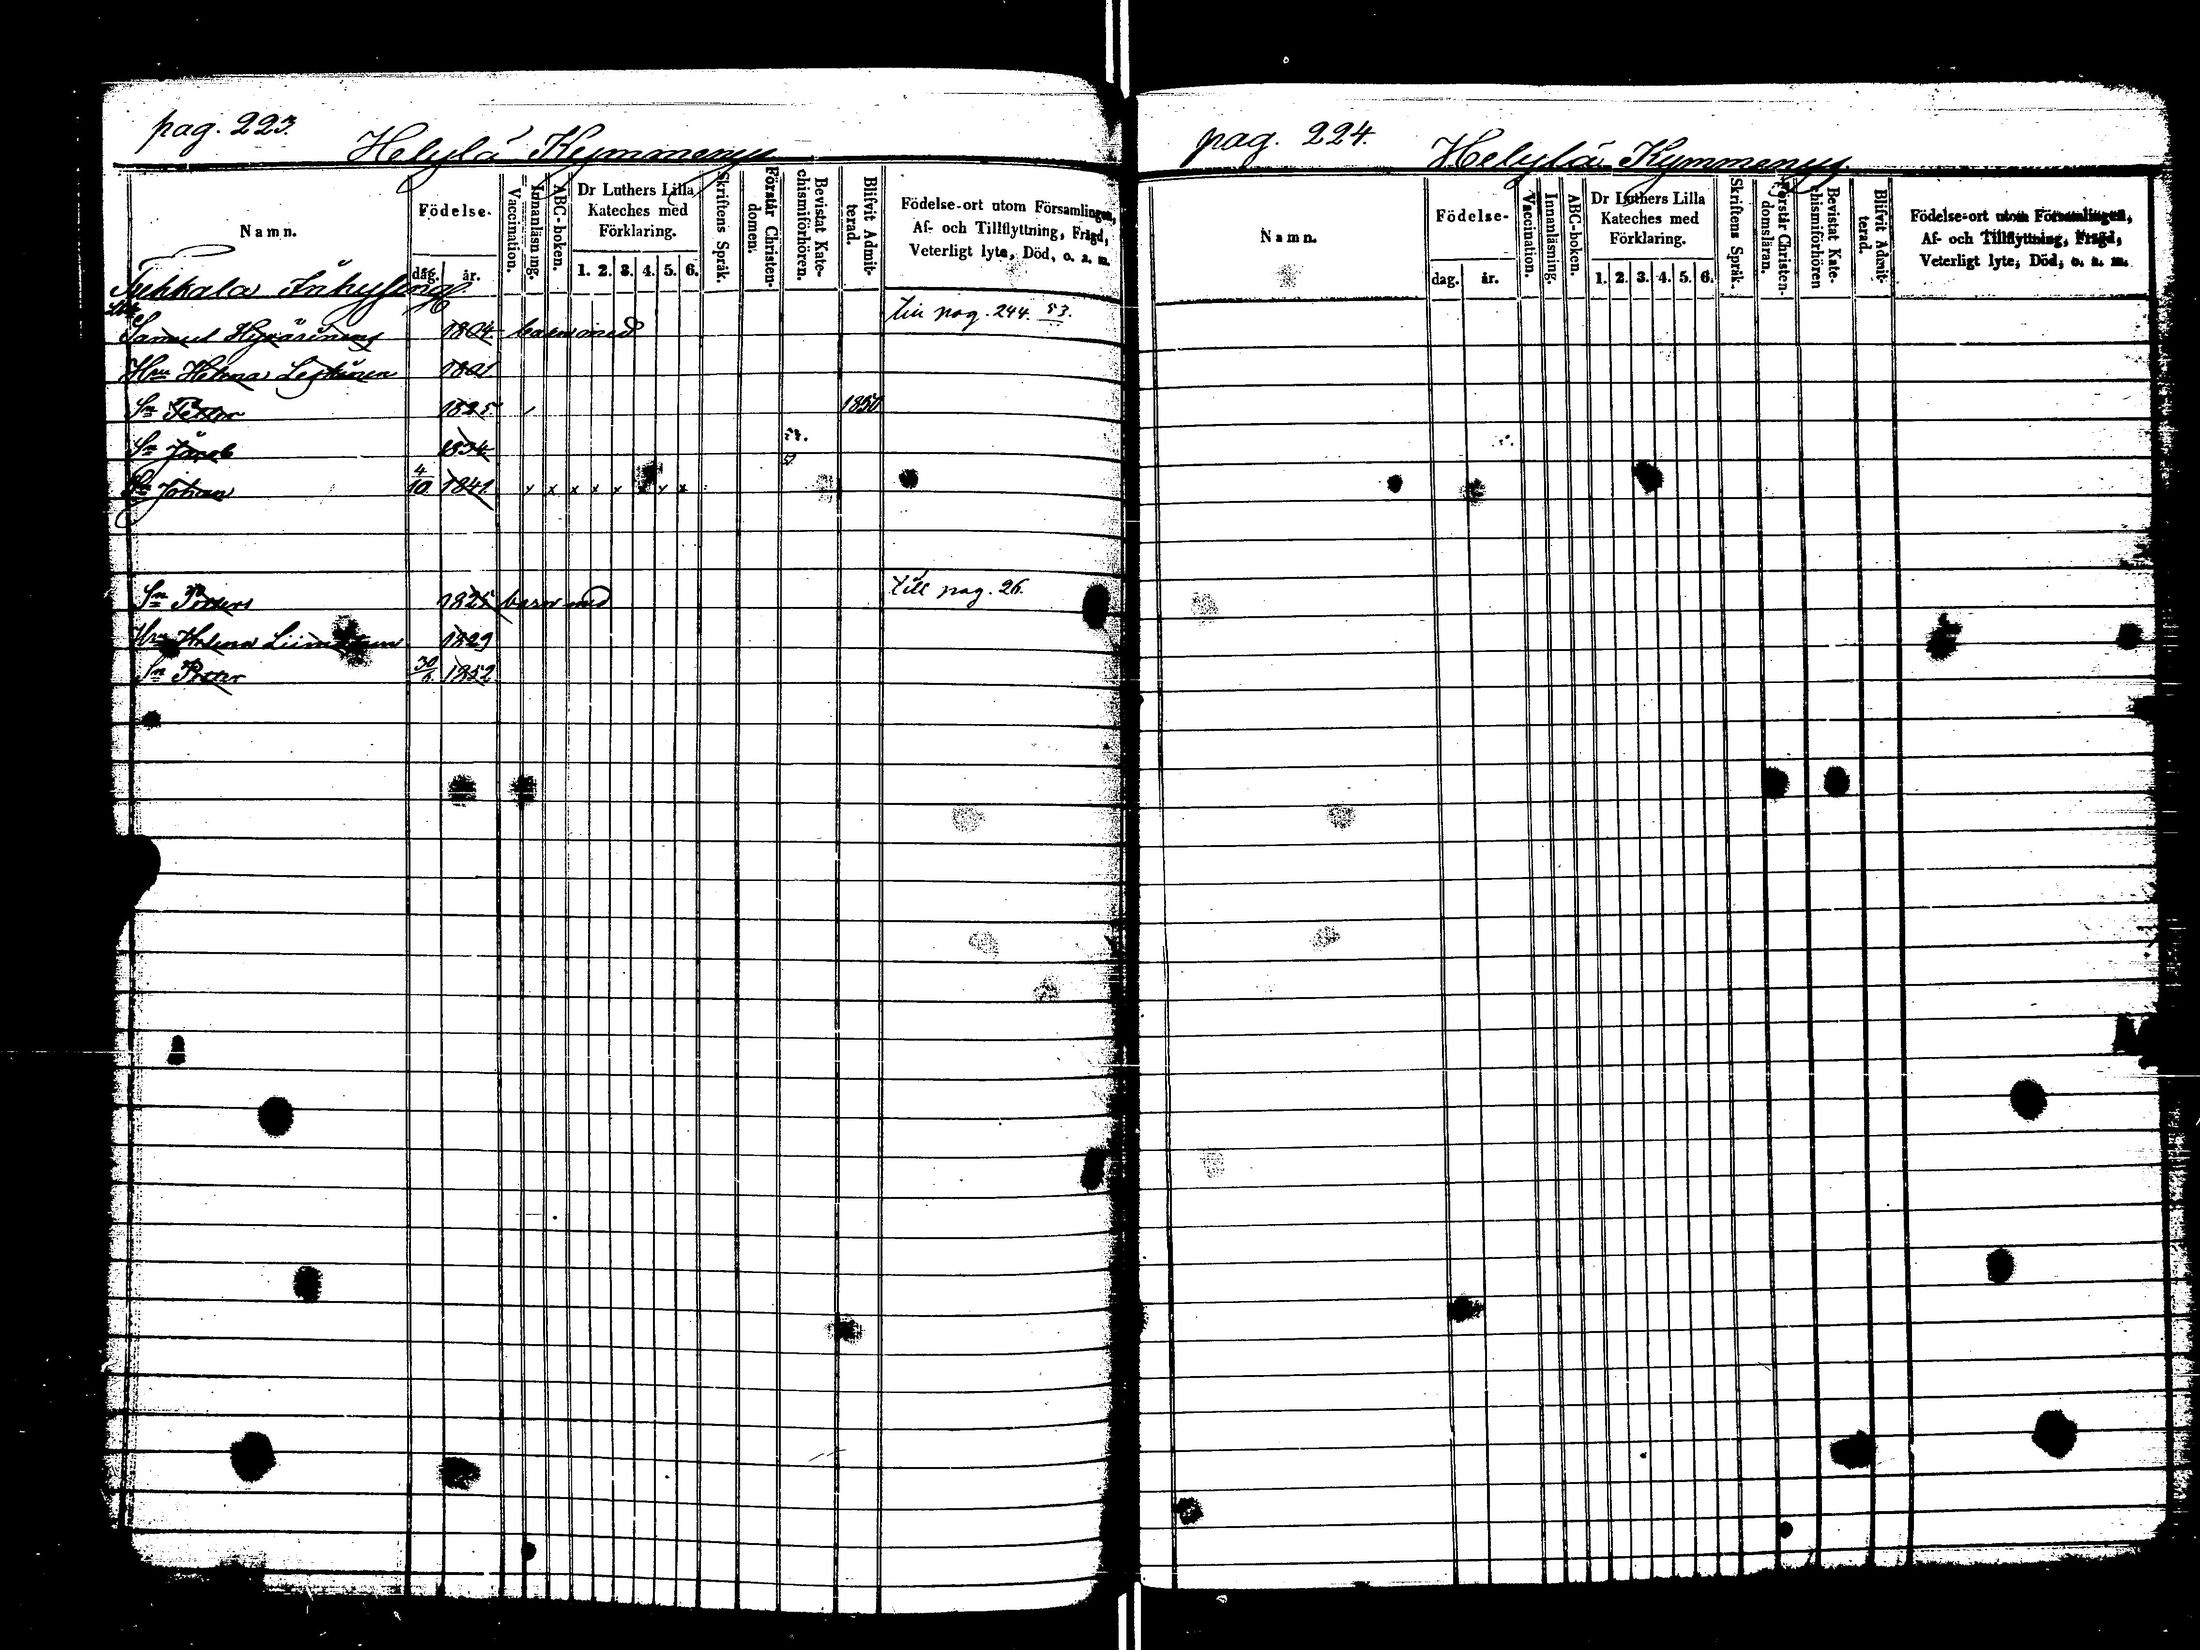 pag. 223.
Helylä Kymmenys
Namn.
Födelse-
dag. år.
Vaccination.
Innanläsning.
ABC-boken.
Dr Luthers Lilla
Kateches med
Förklaring.
1. 2. 3. 4. 5. 6.
Skriftens Språk.
Förstår Christen-
domen.
Bevistat Kate-
chismiförhören.
Blifvit Admit-
terad.
Födelse-ort utom Församlingen,
Af- och Tillflyttning, Frägd,
Veterligt lyte, Död, o. a. m.
Tukkala Inhysing
Samuel Hyvärinens 1804 barn med till pag. 244. 53.
Hru Helena Leskinen 1801
Sn Petter 1825 1850
Sn Jacob 1834
Sn Johan 4/10 1841 x x x x x x x x
Sn Petters 1825 barn med till pag. 26.
Hru Helena 1829
Sn Petter 30/6 1852
pag. 224.
Helylä Kymmenys
Namn.
Födelse-
dag. år.
Vaccination.
Innanläsning.
ABC-boken.
Dr Luthers Lilla
Kateches med
Förklaring.
1. 2. 3. 4. 5. 6.
Skriftens Språk.
Förstår Christen-
domsläran.
Bevistat Kate-
chismiförhören
Blifvit Admit-
terad.
Födelse-ort utom Församlingen,
Af- och Tillflyttning, Frägd,
Veterligt lyte, Död, o. a. m.